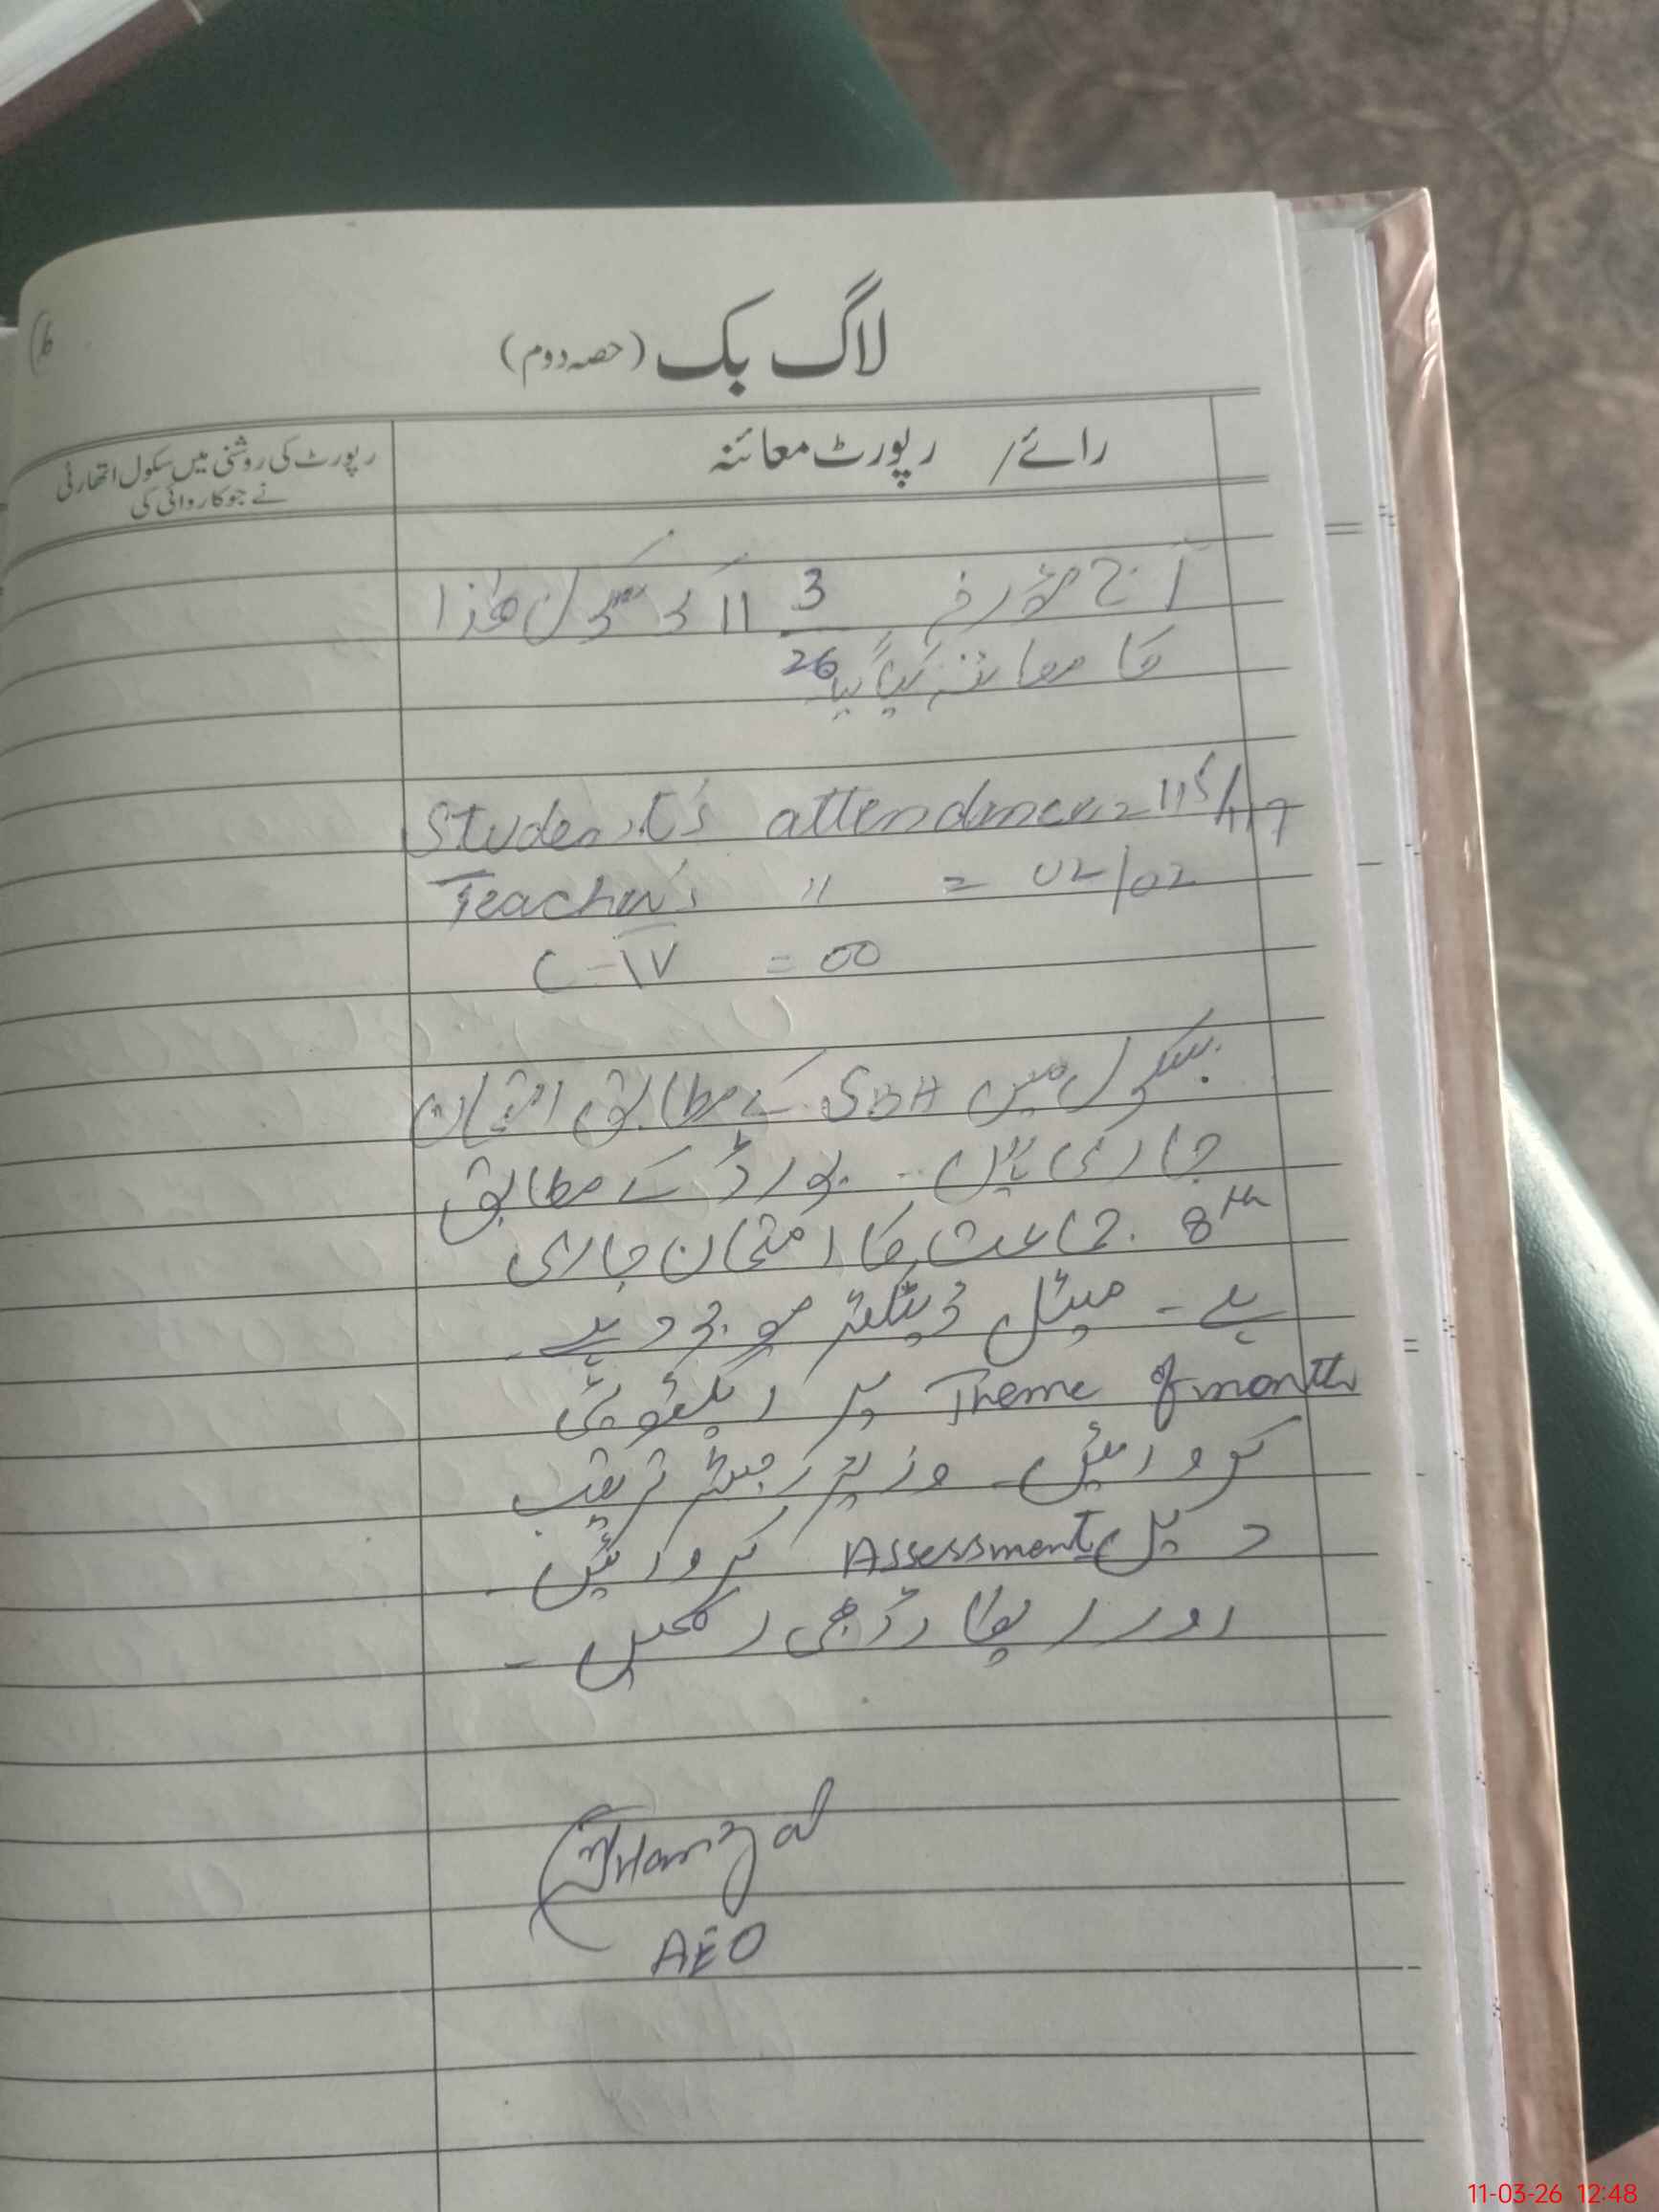 لاگ بک (حصہ دوم)
رائے/ رپورٹ معائنہ
رپورٹ کی روشنی میں سکول اتھارٹی
نے جو کاروائی کی
آج مؤرخہ 11 3/26 کو سکول ھٰذا
کا معائنہ کیا گیا
Student's attendance = 115/117
Teacher's " = 02/02
C-IV = 00
سکول میں SBA کے مطابق امتحان
جاری ہیں۔ بورڈ کے مطابق
8th جماعت کا امتحان جاری
ہے۔ میٹل ڈیٹکٹر موجود ہے۔
Theme of month پر ایکٹوٹی
کروائیں۔ وزیٹر رجسٹر ترتیب
دیں Assessment کروائیں۔
اور ریکارڈ بھی رکھیں۔
AEO
11-03-26 12:48